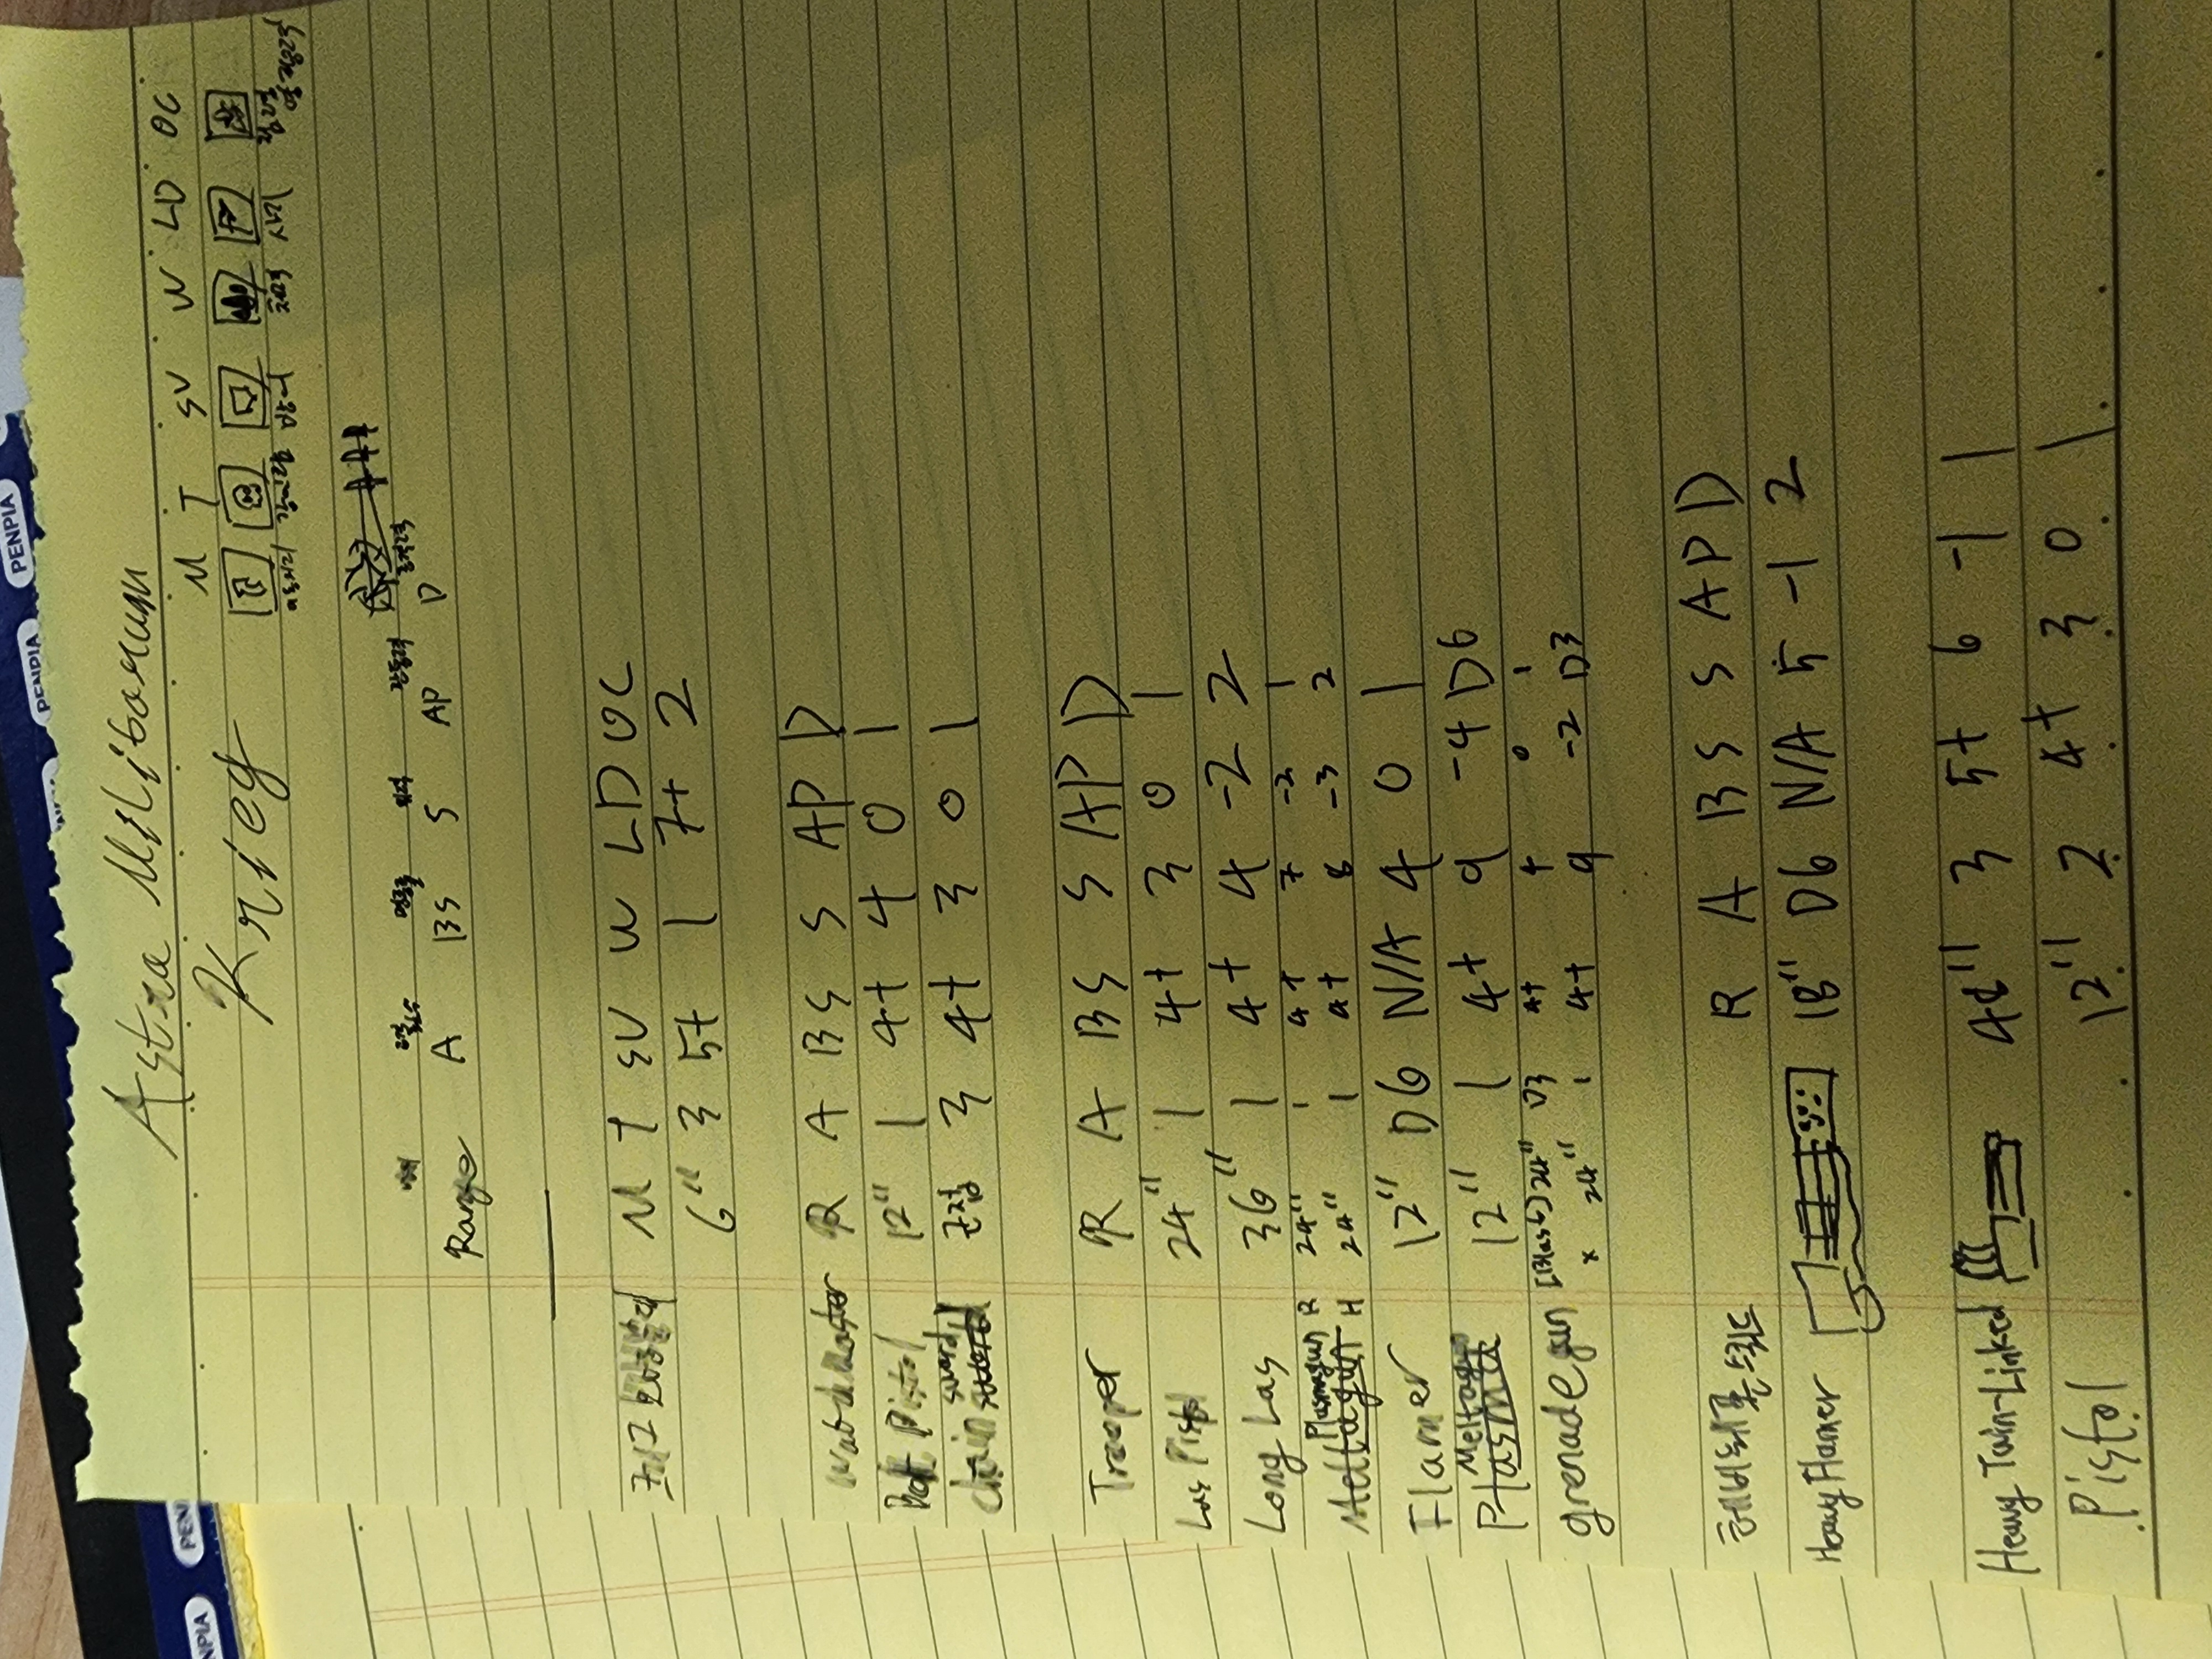 PENPIA
PENPIA
PENPIA
PENPIA
NPIA
Astra Militarum
Krieg
M T SV W LD OC
이동거리 강인함 방어 체력 사기
Range A BS S AP D
M T SV W LD OC
6" 3 5+ 1 7+ 2
R A BS S AP D
Bolt Pistol 12" 1 4+ 4 0 1
chain sword 근접 3 4+ 3 0 1
Trooper R A BS S AP D
Las Pistol 24" 1 4+ 3 0 1
Long Las 36" 1 4+ 4 -2 2
Plasmagun R 24" 1 4+ 7 -2 1
H 24" 1 4+ 8 -3 2
Flamer 12" D6 N/A 4 0 1
Meltagun 12" 1 4+ 9 -4 D6
grenade gun [Blast] 24" D3 4+ 4 0 1
x 24" 1 4+ 9 -2 D3
헤비웨폰스쿼드 R A BS S AP D
Heavy Flamer 18" D6 N/A 5 -1 2
Heavy Twin-Linked 48" 3 5+ 6 -1 1
Pistol 12" 2 4+ 3 0 1